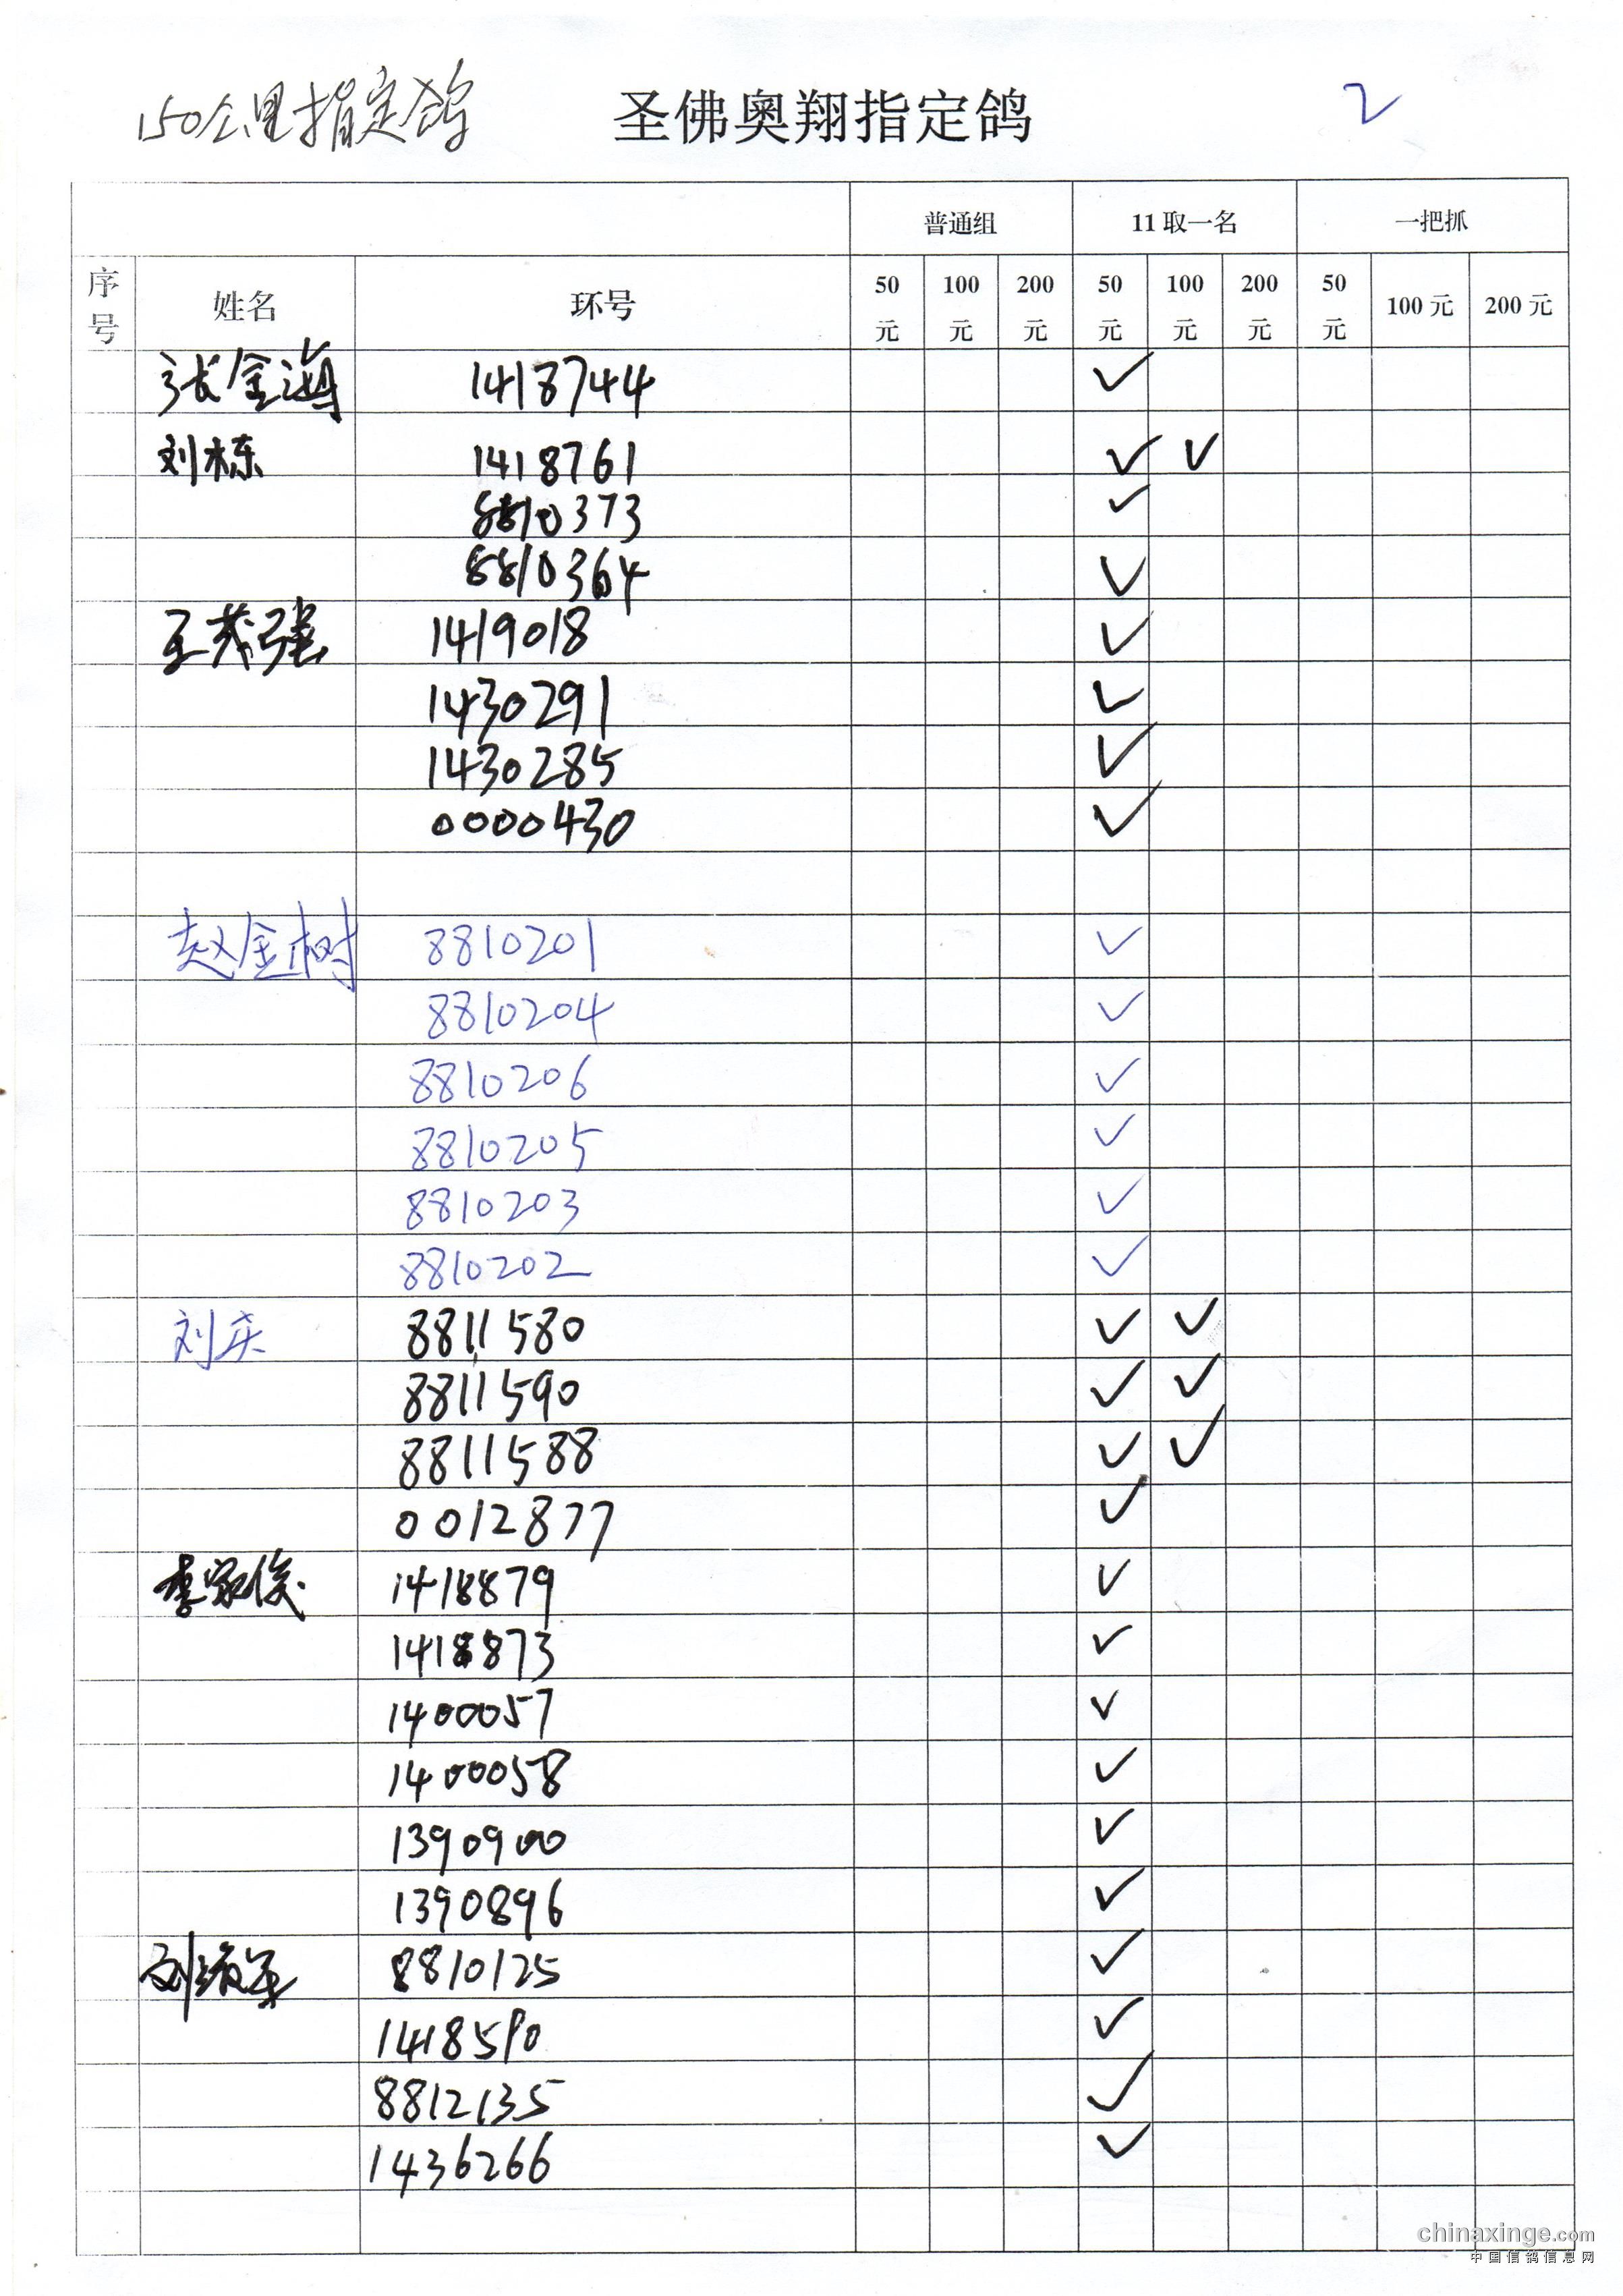 150公里指定鸽 圣佛奥翔指定鸽 2
普通组 11取一名 一把抓
序号 姓名 环号 50元 100元 200元 50元 100元 200元 50元 100元 200元
张金海 1418744 ✓
刘栋 1418761 ✓ ✓
8810373 ✓
8810364 ✓
王茂强 1419018 ✓
1430291 ✓
1430285 ✓
0000430 ✓
赵金树 8810201 ✓
8810204 ✓
8810206 ✓
8810205 ✓
8810203 ✓
8810202 ✓
刘庆 8811580 ✓ ✓
8811590 ✓ ✓
8811588 ✓ ✓
0012877 ✓
李家俊 1418879 ✓
1418873 ✓
1400057 ✓
1400058 ✓
1390900 ✓
1390896 ✓
刘 8810125 ✓
1418590 ✓
8812135 ✓
1436266 ✓
chinaxinge.com
中国信鸽信息网